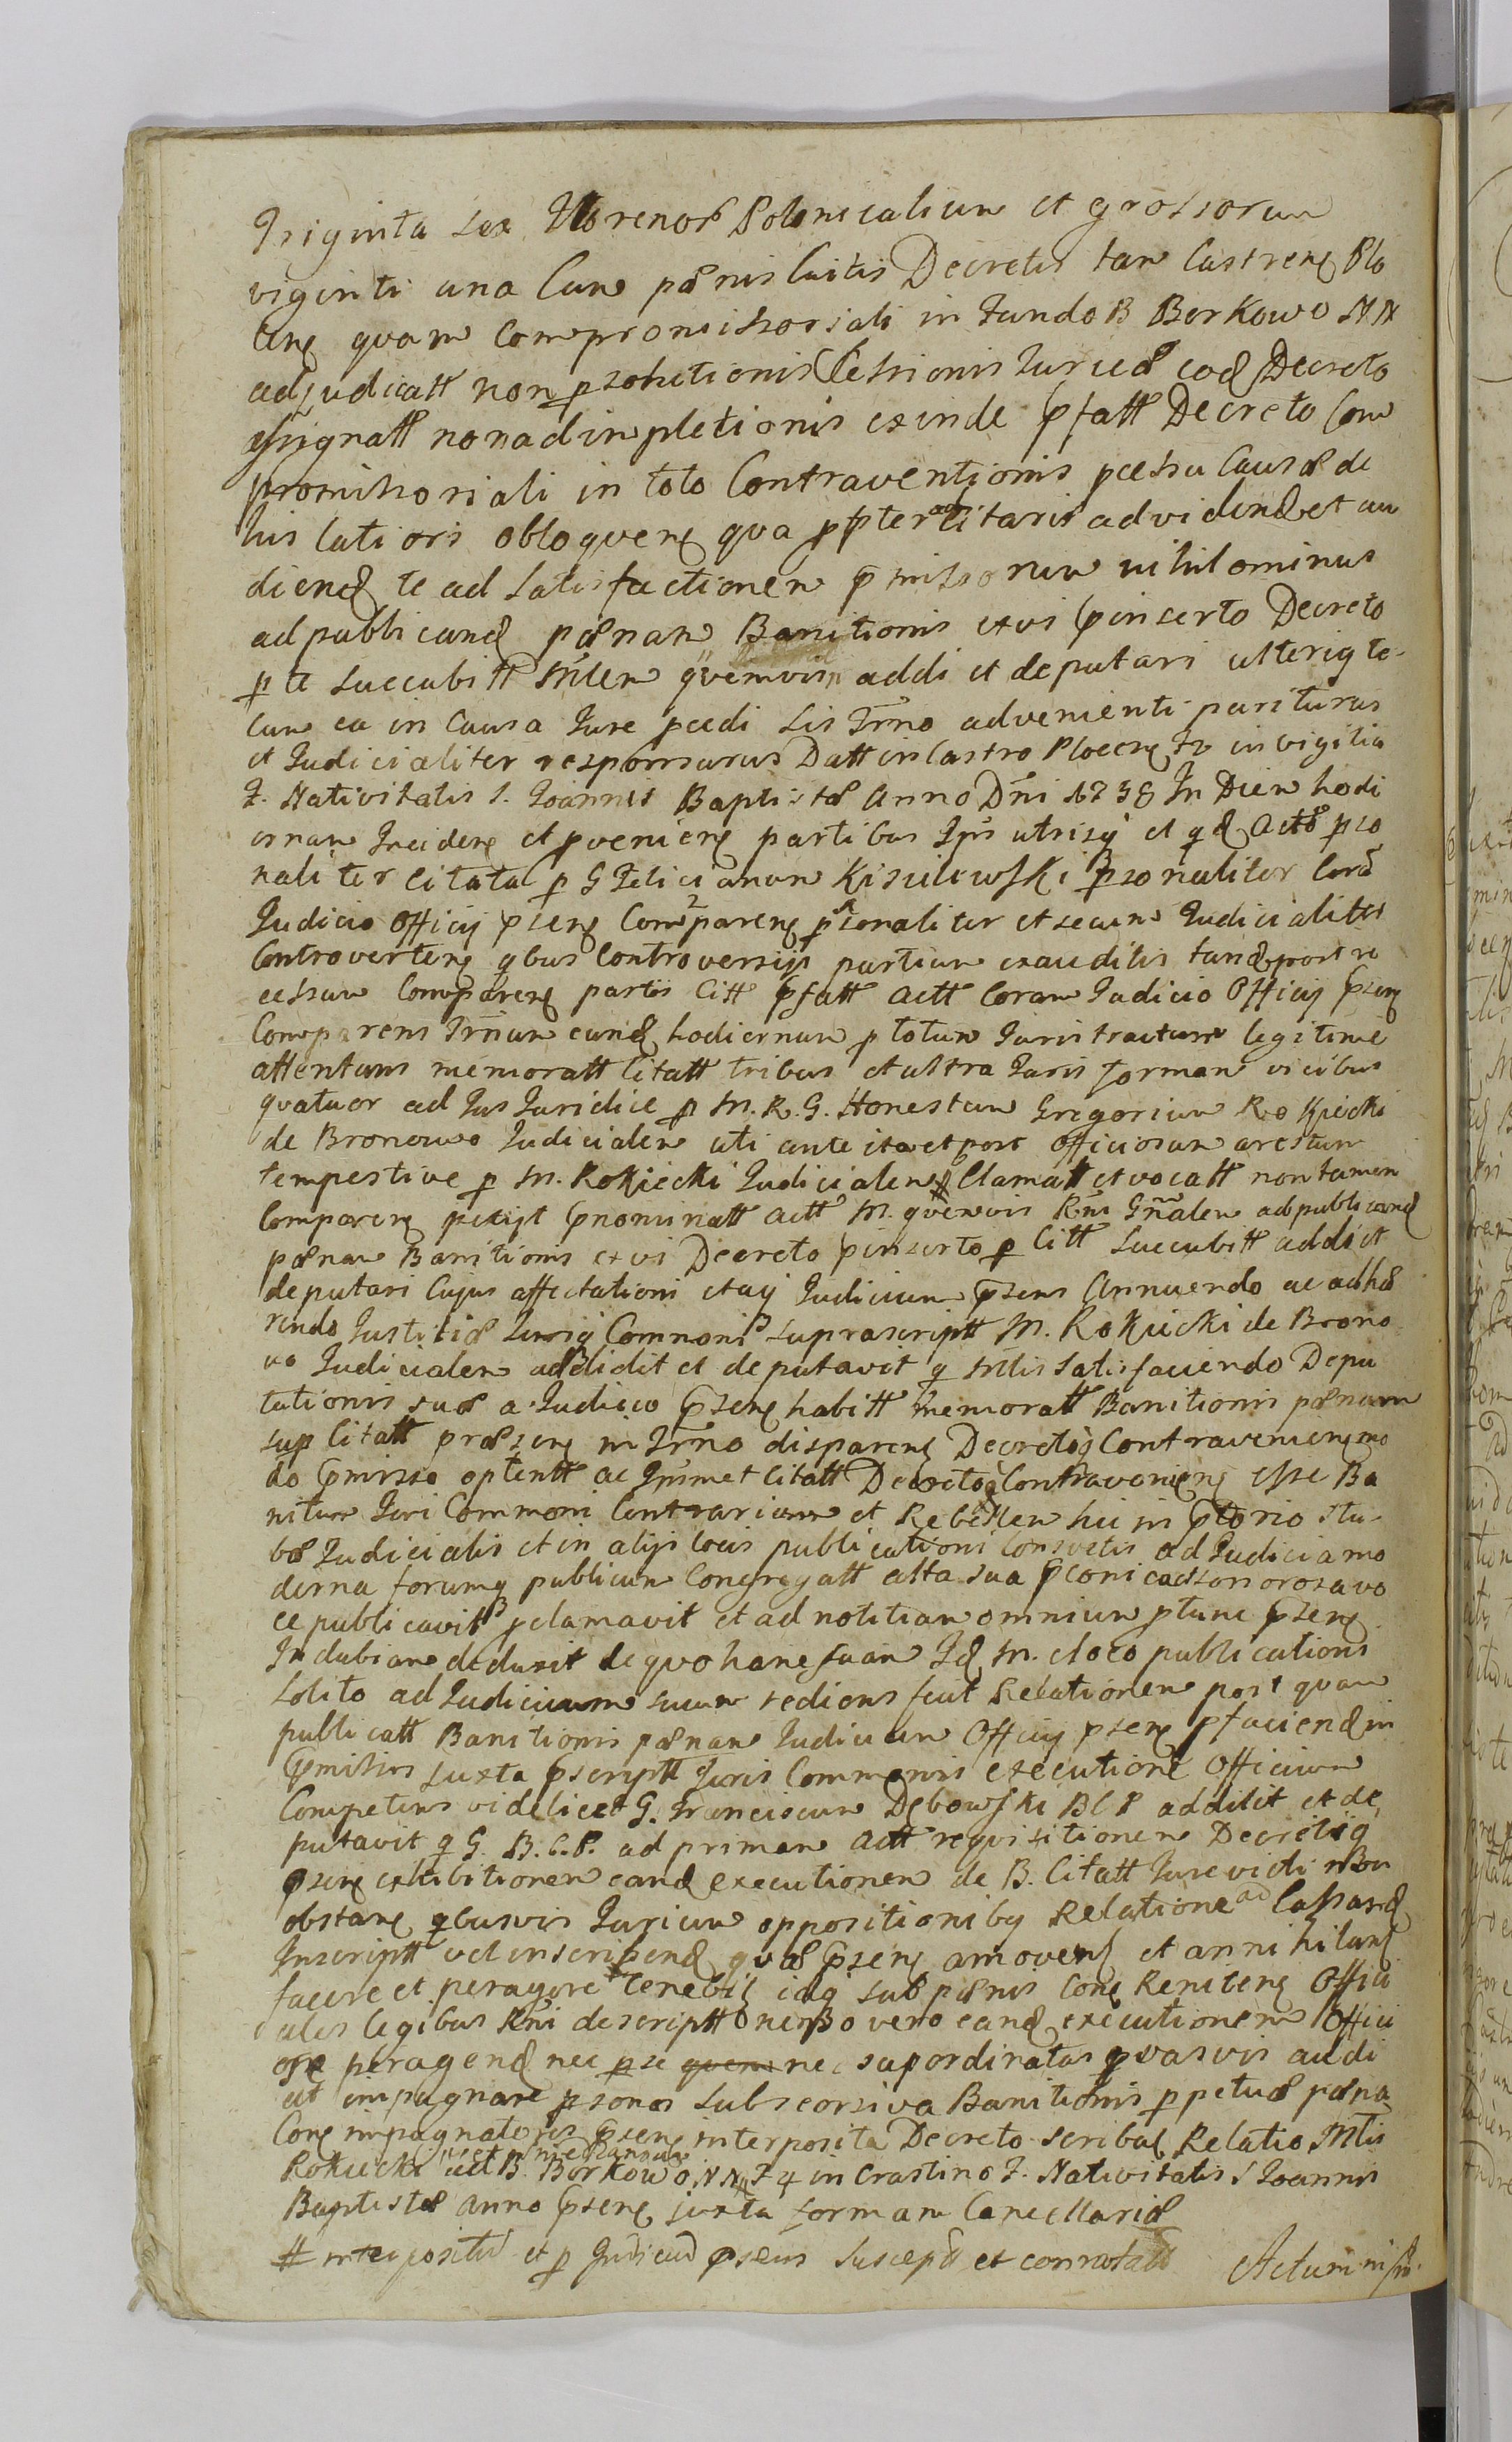 Triginta sex Florenor Polonicalium et grossorum
viginti una Cum pœnis luitis Decretis tam Castren Plo
cen quam Compromissoriali in fundo B Borkowo NN
adjudicatt non psolutionis Cessionis Juriû eod Decreto
assignatt non adimpletionis exinde pfatt Decreto Com
promissoriali in toto Contraventionis pcessu Causœ de
his latiori obloquen qua ppter ad Citaris ad vidend et au
diend te ad satisfactionem pmissorum nihilominus
ad publicand pœnam Banitionis ex vi pinserto Decreto
p te succubitt Mlem quemvis addi et deputari ulterig te
cum ea in Causa Jure pcedi sis Trno advenienti pariturus
et Judicialiter responsurus Datt in Castro Plocen fr in vigilia
F. Nativitatis S. Joannis Baptistœ Anno Dni 1738 In Diem hodi
ernam Inciden et pvenien partibus Ipis utrisq et qd Actô pso
naliter Citata p G Felicianum Kisielewski psonaliter Corā
Judicio Officij psen Comparen psonaliter et secum Judicialiter
Controverten qbus Controversijs partium exauditis tand post re
cessum Comparen partis Citt pfatt Actt Coram Judicio Officij psen
Comparens Trnum eund hodiernum p totum Juris tractum legitime
attentans memoratt Citatt tribus et ultra Juris formam vicibus
quatuor ad Jus Juridice p M. R. G. Honestum Gregorium Rokiecki
de Bronowo Judicialem uti ante ita et post Officiosum arestum
tempestive p M. Rokiecki Judicialem # Clamatt et vocatt non tamen
Comparen petijt pnominatt Actt M. quemvis Rni Gnalem ad publicand
pœnam Banitionis ex vi Decreto pinserto p Citt succubitt addi et
deputari Cujus affectationi itaq Judicium psens Annuendo ac adhœ
rendo Justitiœ Jurisq Commoni suprascriptt M. Rokiecki de Brono
wo Judicialem addidit et deputavit q Mtis satisfaciendo Depu
tationis suœ a Judicio psen habitt memoratt Banitionis pœnam
sup Citatt prœsen in Trno disparen Decretoq Contravenien mo
do pmisso optentt ac Ipmet Citatt Decretoq Contravenien esse Ba
nitum Juri Commoni Contrarium et Rebellem hic in ptorio stu
bœ Judicialis et in alijs locis publicationi Consvetis ad Judicia mo
derna forumq publicum Congregatt alta sua pconica et sonorosa vo
ce publicavit pclamavit et ad notitiam omnium ptunc psen
Indubiam deduxit de quo hanc suam Id M. e loco publicationi
solito ad Judicium suum rediens fecit Relationem post quam
publicatt Banitionis pœnam Judicium Officij psen pfaciend in
pmissis juxta pscriptt Juris Commonis executione Officium
Competens videlicet G. Franciscum Dębowski B C P addidit et de
putavit q G. B. C. P. ad primam Actt requisitionem Decretiq
psen exhibitionem eand executionem de B. Citatt Jurevicti non
obstan qbusvis Jurium oppositionibq Relatione ad Cassand
Inscriptt vel inscribend quœ psen amovend et annihiland
facere et peragere tenebit idq sub pœnis Con Reniten Offici
ales legibus Rni descriptt nemo vero eand executionem Offici
ose peragend nec p se quem nec supordinatas quasvis audi
at impugnare psonas sub seorsiva Banitionis ppetuœ pœna
Con impugnatores psen interposita Decreto scribat Relatio Mtis
Rokiecki ad B. Borkowo NN F 4 in Crastino F. Nativitatis S Joannis
Baptistœ Anno psen juxta formam Cancellariœ
# interpositū et p Judiciū psens suscept et connotatt
Actum in